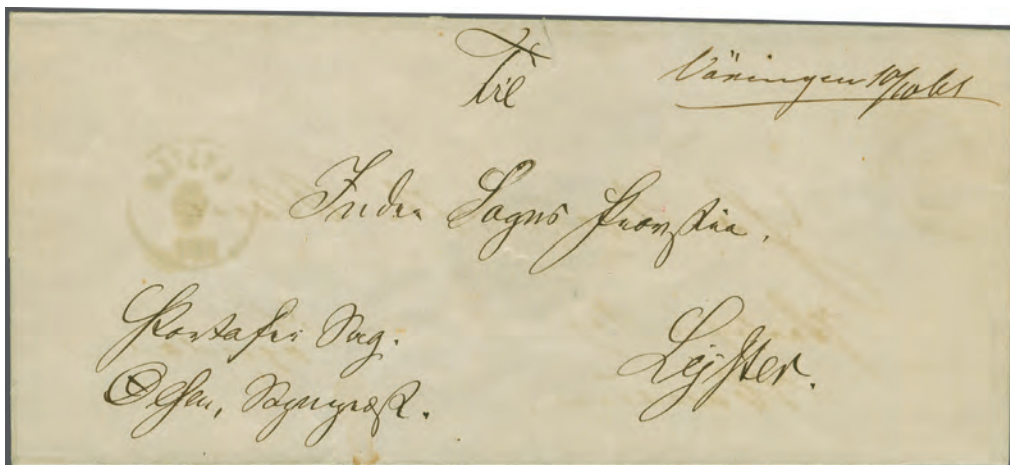 Til
Väringen 10/10 61
Indre Sogns Provstie.
Portofri Sag.
Sognepræst.
Lejster.